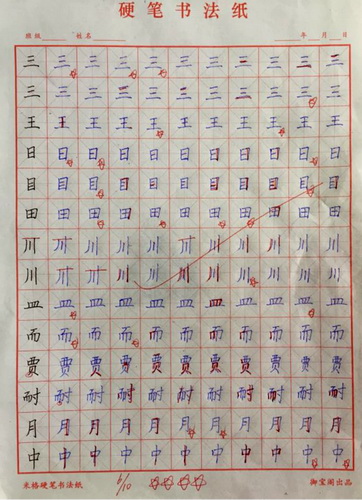 硬笔书法纸
班级 姓名 年 月 日
三三三三三三三三三三三
三三三三三三三三三三三
王王王王王王王王王王王
日日日日日日日日日日日
目目目目目目目目目目目
田田田田田田田田田田田
川川川川川川川川川川川
川川川川川川川川川川川
皿皿皿皿皿皿皿皿皿皿皿
而而而而而而而而而而而
贾贾贾贾贾贾贾贾贾贾贾
耐耐耐耐耐耐耐耐耐耐耐
月月月月月月月月月月月
中中中中中中中中中中中
米格硬笔书法纸 6/10 御宝阁出品